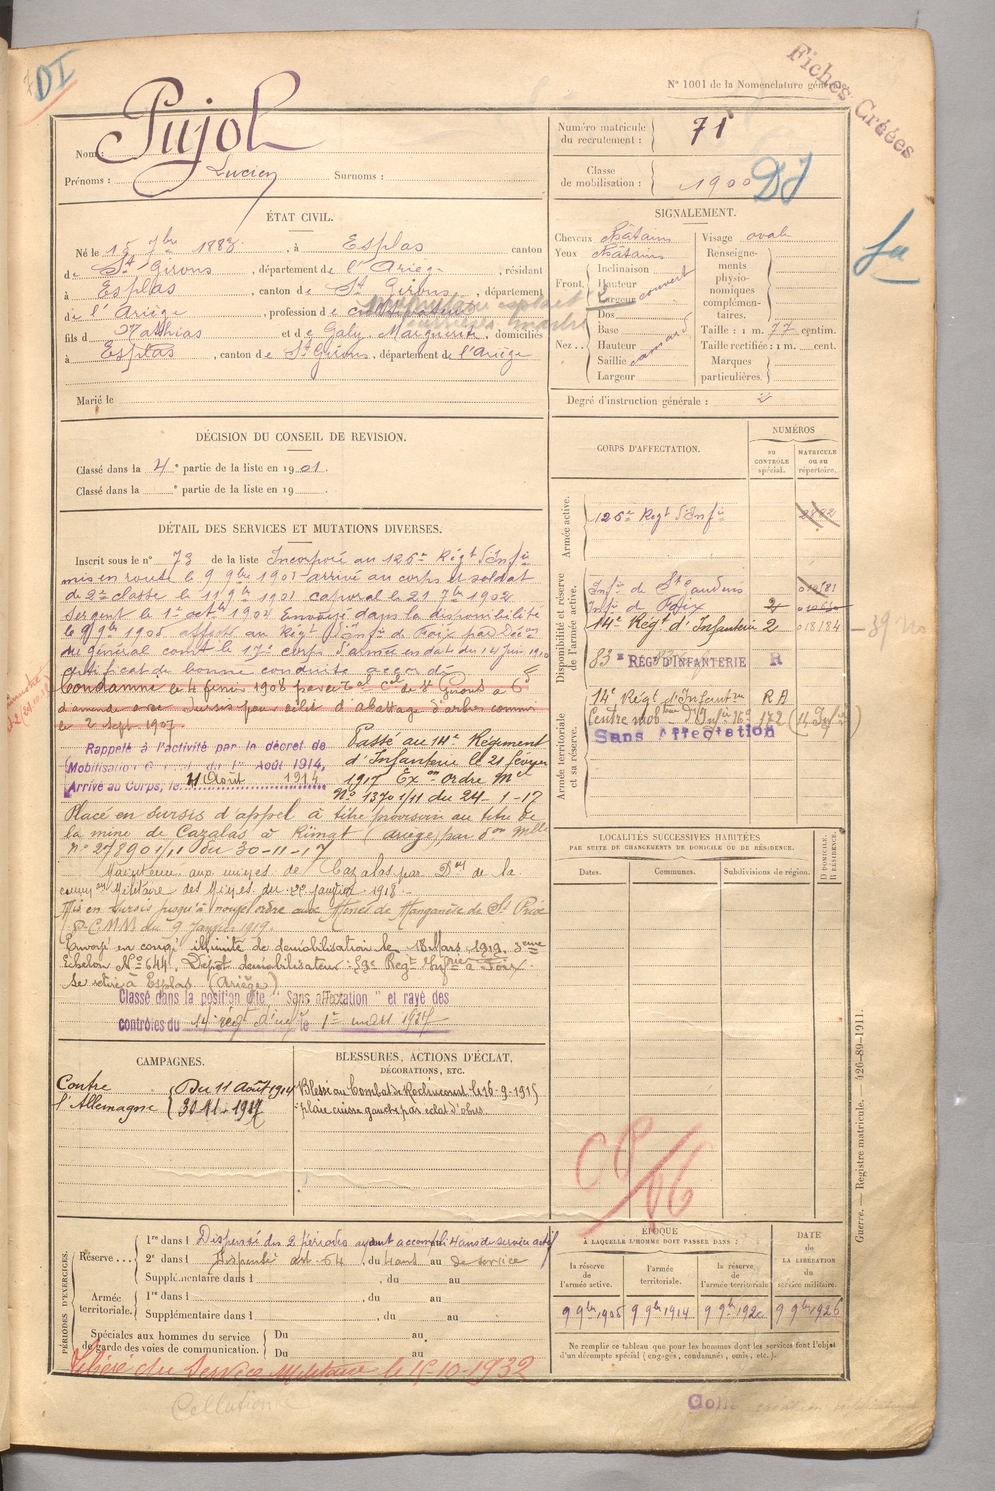 DI
Fiches Créées
N° 1001 de la Nomenclature générale
Nom : Pujol
Prénoms : Lucien Surnoms :
Numéro matricule du recrutement : 71
Classe de mobilisation : 1900
ÉTAT CIVIL.
Né le 15 7bre 188 , à Esplas canton
de St Girons , département de l'Ariège , résidant
à Esplas , canton de St Girons , département
de l'Ariège , profession de cultivateur
fils de Mathias et de Galy, Marguerite , domiciliés
à Esplas , canton de St Girons , département de l'Ariège
Marié le
SIGNALEMENT.
Cheveux châtains Visage ovale
Yeux châtains Renseignements physionomiques complémentaires.
Front Inclinaison
Hauteur
Largeur couvert
Nez Dos
Base
Hauteur
Saillie
Largeur
Taille : 1 m. 77 centim.
Taille rectifiée : 1 m. cent.
Marques particulières.
Degré d'instruction générale : 2
DÉCISION DU CONSEIL DE REVISION.
Classé dans la 4e partie de la liste en 1901.
Classé dans la e partie de la liste en 19 .
DÉTAIL DES SERVICES ET MUTATIONS DIVERSES.
Inscrit sous le n° 73 de la liste Incorporé au 126e Régt d'Infie
mis en route le 9 9bre 1901 arrivé au corps et soldat
de 2e classe le 11 9bre 1901 caporal le 21 7bre 1902
sergent le 1er octbre 1904 Envoyé dans la disponibilité
le 9 9bre 1905 affecté au Régt d'Inf de Foix par décon
du général comt le 17e corps d'armée en date du 14 juin 1910
certificat de bonne conduite accordé
Condamné le 4 février 1908 par le Tal Cel de St Girons à 6f
d'amende avec sursis pour délit d'abattage d'arbres commis
le 2 Sept. 1907.
Rappelé à l'activité par le décret de
Mobilisation Générale du 1er Août 1914,
Arrivé au Corps, le 11 Août 1914
Passé au 14e Régiment
d'Infanterie le 21 février
1917 Exon Ordre Mel
N° 1370 1/11 du 24-1-17
Placé en sursis d'appel à titre provisoire au titre de
la mine de Cazalas à Rimgt (ariège) par don Mlle
n° 27890 1/11 du 30-11-17
Maintenu aux mines de Cazalas par Don de la
Militaire des Mines du janvier 1918
Mis en sursis jusqu'à nouvel ordre aux Mines de Manganèse de St
D. C.M.M du 9 Janvier 1919.
Envoyé en congé illimité de démobilisation le 18 Mars 1919. 3eme
Echelon N° 644. Dépôt démobilisateur : 59e Regt Infrie à Foix.
Se retire à Esplas (Ariège)
Classé dans la position dite "Sans affectation" et rayé des
contrôles du 14e régt d'inf le 1er mars 1927
CORPS D'AFFECTATION.
NUMÉROS
AU CONTRÔLE spécial.
MATRICULE OU AU répertoire.
Armée active.
126e Regt d'Infie 2882
Disponibilité et réserve de l'armée active.
Infie de St Gaudens
Infie de Foix 2
14e Régt d'Infanterie 2 018184
83e RÉGt D'INFANTERIE R
Armée territoriale et sa réserve.
14e Régt d'Infantrie RA
Centre mobon d'Infie N° 172 (14 Infie)
Sans Affectation
LOCALITÉS SUCCESSIVES HABITÉES
PAR SUITE DE CHANGEMENTS DE DOMICILE OU DE RÉSIDENCE.
Dates. Communes. Subdivisions de région. D DOMICILE. R RÉSIDENCE.
CAMPAGNES.
Contre l'Allemagne
Du 11 Août 1914
30-11-1917
BLESSURES, ACTIONS D'ÉCLAT, DÉCORATIONS, ETC.
Blessé au Combat de Roclincourt le 26-9-1915
plaie cuisse gauche par éclat d'obus.
PÉRIODES D'EXERCICES.
Réserve... 1re dans l Dispensé des 2 périodes ayant accompli 4 ans de service actif
2e dans l Dispensé art. 64 , du 4 ans au de service
Supplémentaire dans l , du au
Armée territoriale. 1re dans l , du au
Supplémentaire dans l , du au
Spéciales aux hommes du service de garde des voies de communication.
Du au
Du au
Libéré du Service Militaire le 15-10-1932
ÉPOQUE
À LAQUELLE L'HOMME DOIT PASSER DANS :
la réserve de l'armée active.
l'armée territoriale.
la réserve de l'armée territoriale
DATE de LA LIBÉRATION du service militaire.
9 9bre 1905
9 9bre 1914
9 9bre 1920
9 9bre 1926
Ne remplir ce tableau que pour les hommes dont les services font l'objet d'un décompte spécial (engagés, condamnés, omis, etc.).
Guerre. — Registre matricule. — 426-89-1911.
Collationné